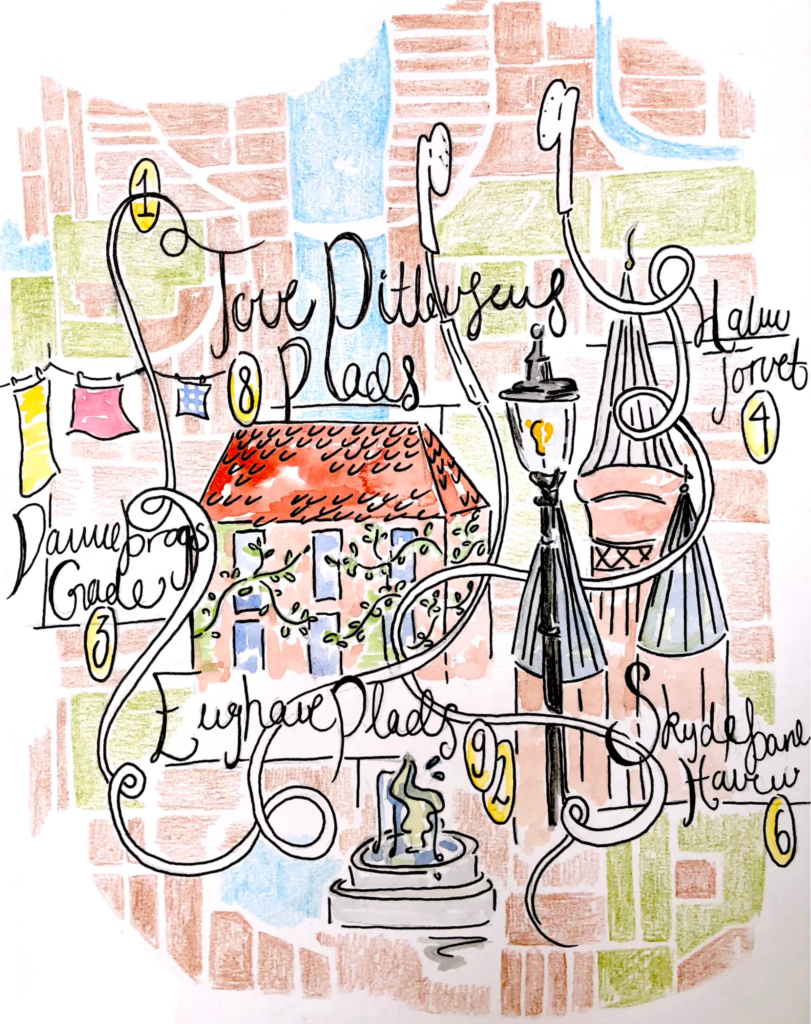 1
Tove Ditlevsens
8 Plads
Halm
Torvet
4
Dannebrogs
Gade
3
Enghave Plads
9 2
Skydebane
Haven
6